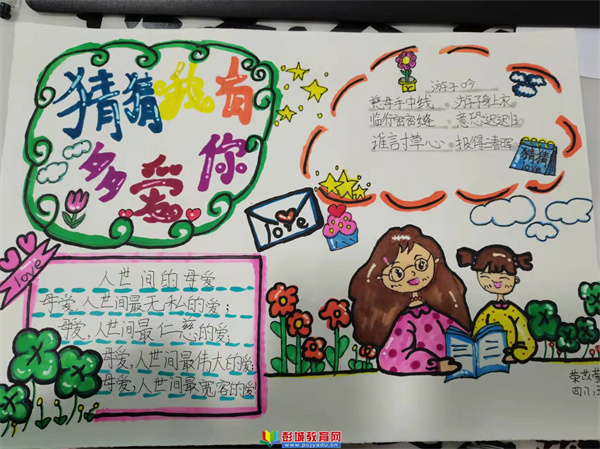 猜猜我有
多爱你
游子吟
慈母手中线 游子身上衣
临行密密缝 意恐迟迟归
谁言寸草心 报得三春晖
猜猜
love
love
love
人世间的母爱
母爱,人世间最无私的爱;
母爱,人世间最仁慈的爱;
母爱,人世间最伟大的爱;
母爱,人世间最宽容的爱!
彭城教育网
www.pcjyedu.cn